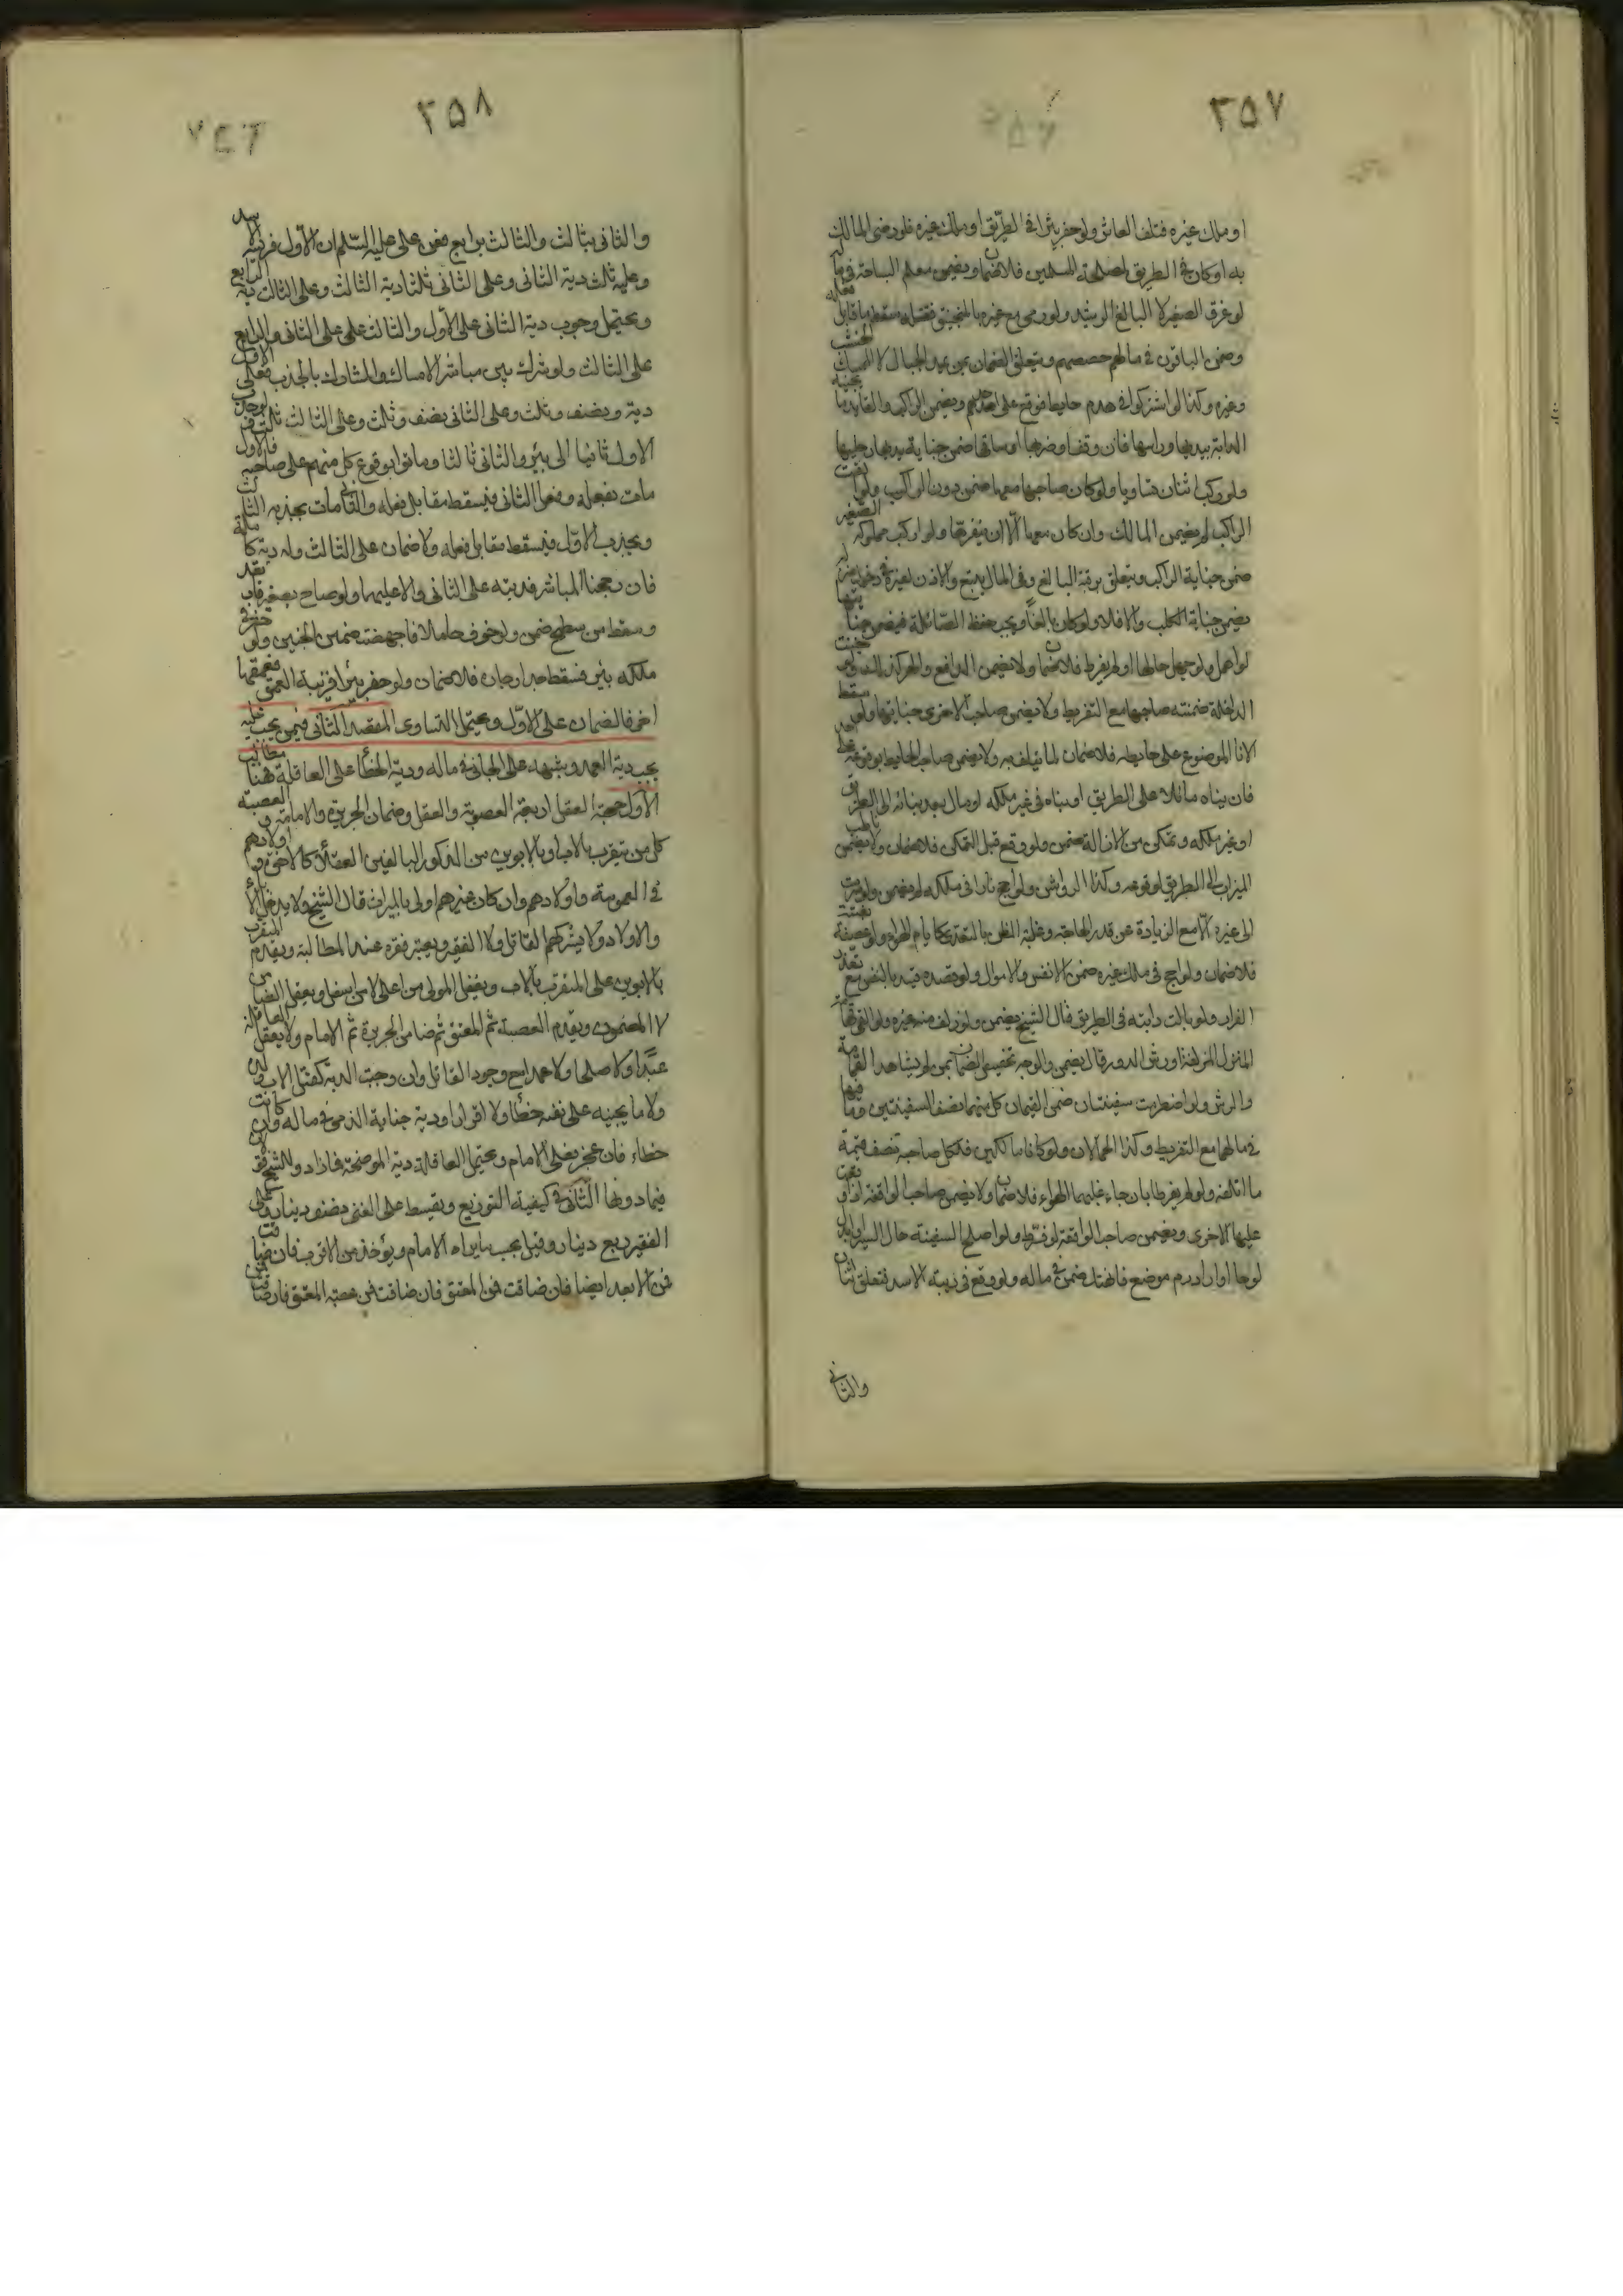 ٣٥٧
او ملك غيره فتلف العاثر ولو حفر بئرا في الطريق او ملك غيره فلو رضى المالك
به او كان في الطريق لمصلحة المسلمين فلا ضمان ويضمن معلم السباحة في ماله
لو غرق الصغير لا البالغ الرشيد ولو رمى مع غيره بالمنجنيق فقتل سقط ما قابل فعله
وضمن الباقون في مالهم حصصهم ويتعلق الضمان بمن يمد الحبال لا الممسك الخشب
وغيره وكذا لو اشتركوا في هدم حايط فوقع على احدهم ويضمن الراكب والقايد ما تجنيه
الدابة بيديها وراسها فان وقف او ضربها او ساقها ضمن جناية يديها ورجليها
ولو ركب اثنان تساويا ولو كان صاحبها معها ضمن دون الراكب ولو القت
الراكب لم يضمن المالك وان كان معها الا ان ينفرها ولو اركب مملوكه الصغير
ضمن جناية الراكب ويتعلق برقبة البالغ وفي المال يتبع والاذن لغيره في دخول منزله
يضمن جناية الكلب والا فلا ولو كان بالغا ويجب حفظ الصائلة فيضمن جنايتها
لو اهمل ولو جهل حالها او لم يفرط فلا ضمان ولا يضمن الدافع
الداخلة ضمنته صاحبها مع التفريط ولا يضمن صاحب الاخرى جنايتها ولو سقط
الانا الموضوع على حايطه فلا ضمان لما يتلف به ولا يضمن صاحب الحايط بوقوعه
فان بناه مائلا على الطريق او بناه في غير ملكه او مال بعد بنائه الى الطريق
او غير ملكه وتمكن من الازالة ضمن ولو وقع قبل التمكن فلا ضمان ولا يضمن ناصب
الميزاب الى الطريق لو وقوعه وكذا الرواشن ولو اجج نارا في ملكه لم يضمن ولو سرت
الى غيره الا مع الزيادة عن قدر الحاجة وغلبة الظن بالتعدي كايام الهواء ولو عصفت بغتة
فلا ضمان ولو اجج في ملك غيره ضمن الانفس والاموال ولو قصده قيد بالنفس مع تعذر
الفرار ولو بالت دابته في الطريق قال الشيخ يضمن ولو زلق منه غيره ولو القى قمامة
المنزل المزلقة او رش الدرب قال يضمن والوجه تخصيص الضمان بمن لم يشاهد القمامة
والرش ولو اضطربت سفينتان ضمن القيمان كل منهما نصف السفينتين وما فيها
في مالهما مع التفريط وكذا الحمالان ولو كانا مالكين فلكل على صاحبه نصف قيمة
ما اتلفه ولو لم يفرطا بان جاء غلبهما الهواء فلا ضمان ولا يضمن صاحب الواقفة اذا وقعت
عليها الاخرى ويضمن صاحب الواقعة لو فرط ولو اصلح السفينة حال السير او ابدل
لوحا او اراد رم موضع فانهتك ضمن في ماله ولو وقع في زبية الاسد فتعلق بثان
والثاني
٣٥٨
والثاني بثالث والثالث برابع فعن على عليه السلم ان الاول فريسة الاسد
وعليه ثلث دية الثاني وعلى الثاني ثلثا دية الثالث وعلى الثالث دية الرابع
ويحتمل وجوب دية الثاني على الاول والثالث على الثاني والرابع
على الثالث ولو شرك بين مباشر الامساك والمشارك بالجذب فعلى الاول
دية ونصف وثلث وعلى الثاني نصف وثلث وعلى الثالث ثلث ولو جذب
الاول ثانيا الى بئر والثاني ثالثا وماتوا بوقوع كل منهم على صاحبه فالاول
مات بفعله وفعل الثاني فيسقط مقابل فعله والثاني مات بجذبه الثالث
وبجذب الاول فيسقط مقابل فعله ولا ضمان على الثالث وله دية كاملة
فان رجحنا المباشر فديته على الثاني والا عليهما ولو صاح بصغير فارتعد
وسقط من سطح ضمن ولو خوف حاملا فاجهضت ضمن الجنين ولو حفر في
ملكه بئر فسقط جدار جاره فلا ضمان ولو حفر بئرا قريبة العمق فعمقها
اخر فالضمان على الاول ويحتمل التساوى المقصد الثاني فيمن يجب عليه
يجب دية العمد وشبهه على الجاني في ماله ودية الخطأ على العاقلة فهنا مطالب
الاول جهة العقل اربعة العصوبة والعتق وضمان الجريرة والامامة والعصبة
كل من يتقرب بالاب او بالابوين من الذكور البالغين العقلاء كالاخوة واولادهم
والعمومة واولادهم وان كان غيرهم اولى بالميراث قال الشيخ ولا يدخل الاباء
والاولاد ولا يشركهم القاتل ولا الفقير ويعتبر فقره عند المطالبة ويقدم المتقرب
بالابوين على المتقرب بالاب ويعقل المولى من اعلى لا من اسفل ويعقل الضامن
لا المضمون ويقدم العصبة ثم المعتق ثم ضامن الجريرة ثم الامام ولا يعقل العاقلة
عبدا ولا صلحا ولا عمدا مع وجود القاتل وان وجبت الدية كقتل الاب ولده
ولا ما يجنيه على نفسه خطأ ولا اقرارا ودية جناية الذمى في ماله وان كانت
خطاء فان عجز فعلى الامام وتحتمل العاقلة دية الموضحة فازاد وللشيخ قولان
فيما دونها الثاني في كيفية التوزيع ويقسط على الغنى نصف دينار وعلى
الفقير ربع دينار وقيل بحسب ما يراه الامام ويؤخذ من الاقرب فان ضاقت
فمن الابعد ايضا فان ضاقت فمن المعتق فان ضاقت فمن عصبة المعتق فان ضاقت فمن